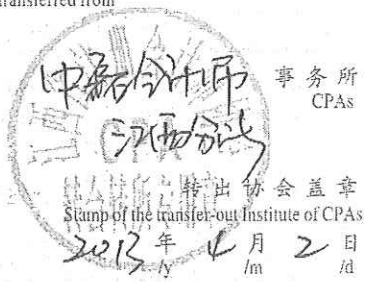 transferred from
中磊会计师 事务所
CPAs
江西分所
CPA
转出协会盖章
Stamp of the transfer-out Institute of CPAs
2013 年 4 月 2 日
/y /m /d